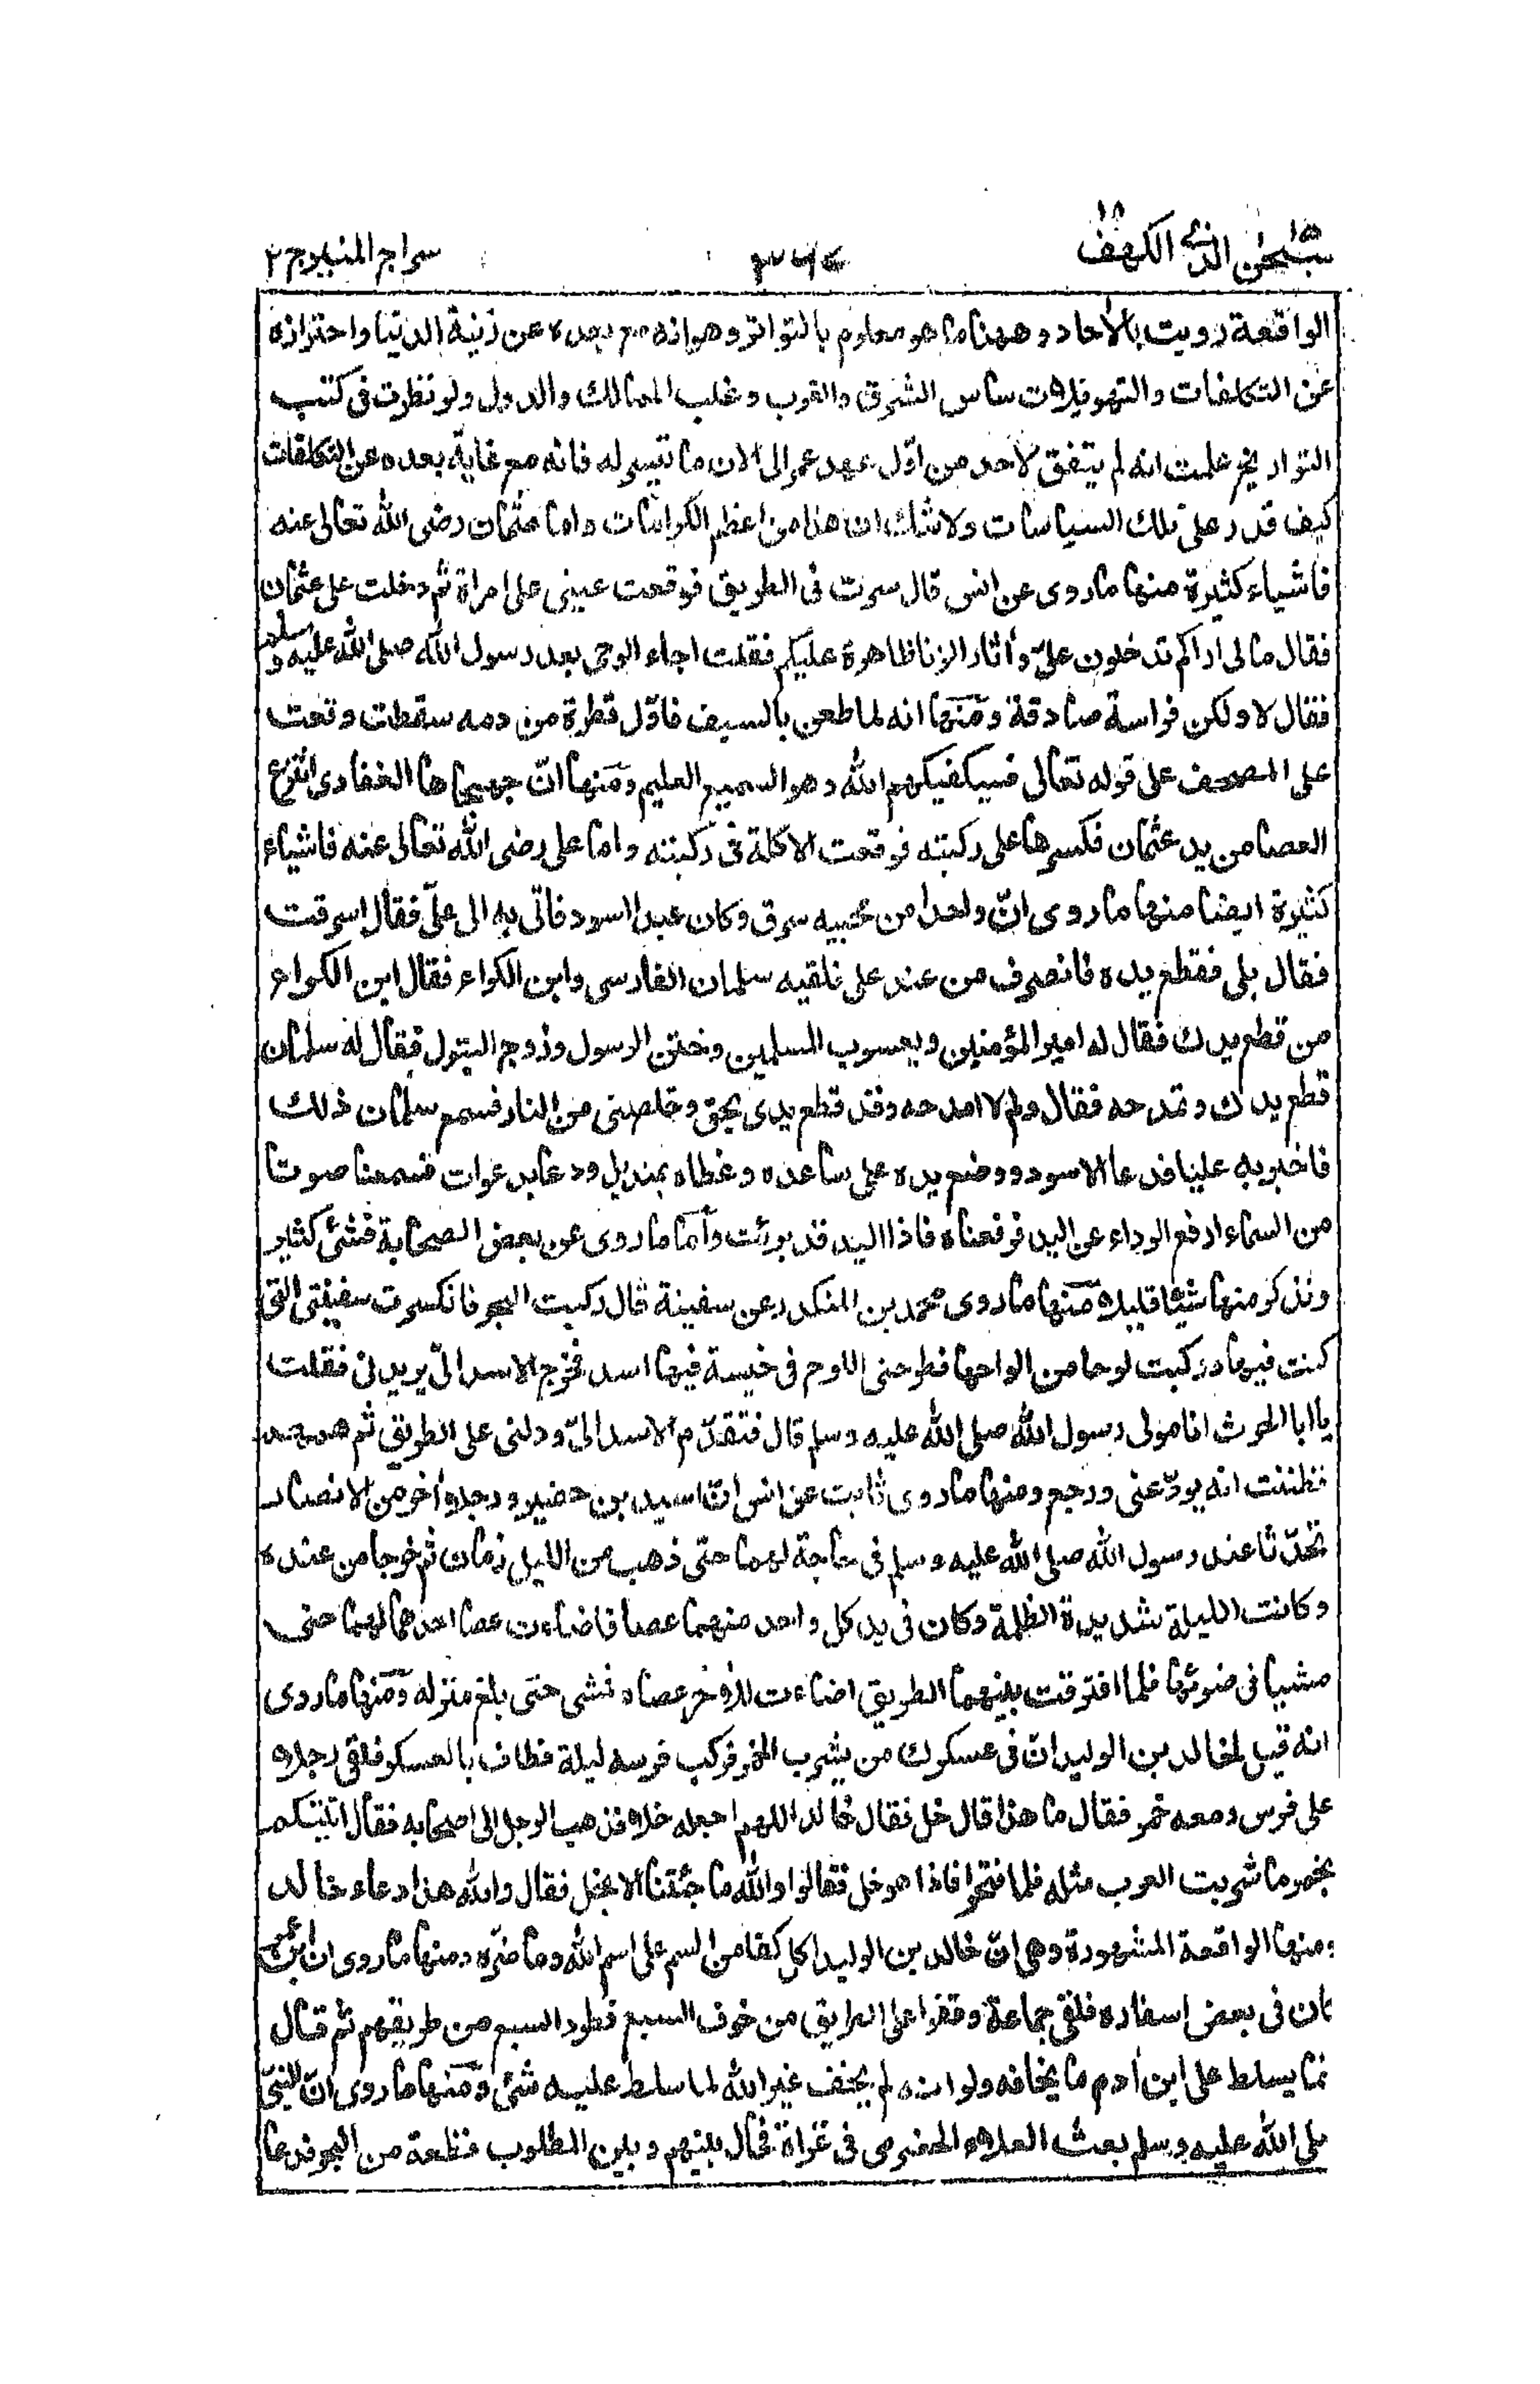 سبحٰن الذی ۱۵ الکهف ۱۸
۳۶۴
سراج المنیر ج ۲
الواقعة رويت بالآحاد وههنا ما هو معلوم بالتواتر وهو انه مع بعده عن زينة الدنيا واحترازه
عن التكلفات والتهويلات ساس الشرق والغرب وغلب الممالك والدول ولو نظرت فى كتب
التواريخ علمت انه لم يتفق لاحد من اوّل عهد عمر الى الان ما تيسر له فانه مع غاية بعده عن التكلفات
كيف قدر على تلك السياسات ولا شك ان هذا من اعظم الكرامات واما عثمان رضى الله تعالى عنه
فاشياء كثيرة منها ما روى عن انس قال سرت فى الطريق فوقعت عينى على امراة ثم دخلت على عثمان
فقال ما لى اراكم تدخلون علىّ وأثار الزنا ظاهرة عليكم فقلت اجاء الوحى بعد رسول الله صلى الله عليه وسلم
فقال لا ولكن فراسة صادقة ومنها انه لما طعن بالسيف فاوّل قطرة من دمه سقطت وقعت
على المصحف على قوله تعالى فسيكفيكهم الله وهو السميع العليم ومنها انّ جهجاها الغفارى انتزع
العصا من يد عثمان فكسرها على ركبته فوقعت الاكلة فى ركبته واما على رضى الله تعالى عنه فاشياء
كثيرة ايضا منها ما روى انّ واحدا من محبيه سرق وكان عبدا اسود فاتى به الى علىّ فقال اسرقت
فقال بلى فقطع يده فانصرف من عند على فلقيه سلمان الفارسى وابن الكواء فقال ابن الكواء
من قطع يدك فقال له امير المؤمنين ويعسوب المسلمين وختن الرسول وزوج البتول فقال له سلمان
قطع يدك وتمدحه فقال ولم لا امدحه وقد قطع يدى بحق وخلصنى من النار فسمع سلمان ذلك
فاخبر به عليا فدعا الاسود ووضع يده على ساعده وغطاه بمنديل ودعا بدعوات فسمعنا صوتا
من السماء ارفع الرداء عن اليد فرفعناه فاذا اليد قد برئت وأمّا ما روى عن بعض الصحابة فشئ كثير
ونذكر منها شيئا قليلا منها ما روى محمد بن المنكدر عن سفينة قال ركبت البحر فانكسرت سفينتى التى
كنت فيها فركبت لوحا من الواحها فطرحنى اللوح فى خيسة فيها اسد فخرج الاسد الىّ يريدنى فقلت
يا ابا الحرث انا مولى رسول الله صلى الله عليه وسلم قال فتقدّم الاسد الىّ ودلنى على الطريق ثم همهم
فظننت انه يودّعنى ورجع ومنها ما روى ثابت عن انس انّ اسيد بن حضير ورجلا أخر من الانصار
تحدّثا عند رسول الله صلى الله عليه وسلم فى حاجة لهما حتى ذهب من الليل زمان ثم خرجا من عنده
وكانت الليلة شديدة الظلمة وكان فى يد كل واحد منهما عصا فاضاءت عصا احدهما لهما حتى
مشيا فى ضوئها فلما افترقت بينهما الطريق اضاءت للأخر عصاه فمشى حتى بلغ منزله ومنها ما روى
انه قيل لخالد بن الوليد انّ فى عسكرك من يشرب الخمر فركب فرسه ليلة فطاف بالعسكر فلقى رجلا
على فرس ومعه خمر فقال ما هذا قال خل فقال خالد اللهم اجعله خلا فذهب الرجل الى اصحابه فقال اتيتكم
بخمر ما شربت العرب مثله فلما فتحوا فاذا هو خل فقالوا والله ما جئتنا الا بخل فقال والله هذا دعاء خالد
ومنها الواقعة المشهورة وهى انّ خالد بن الوليد اكل كفا من السم على اسم الله وما ضرّه ومنها ما روى ان ابن عمر
كان فى بعض اسفاره فلقى جماعة وقفوا على الطريق من خوف السبع فطرد السبع من طريقهم ثم قال
نما يسلط على ابن أدم ما يخافه ولو انه لم يخف غير الله لما سلط عليه شئ ومنها ما روى انّ النبىّ
صلى الله عليه وسلم بعث العلاء الحضرمى فى غزاة فحال بينهم وبين المطلوب قطعة من البحر فدعا